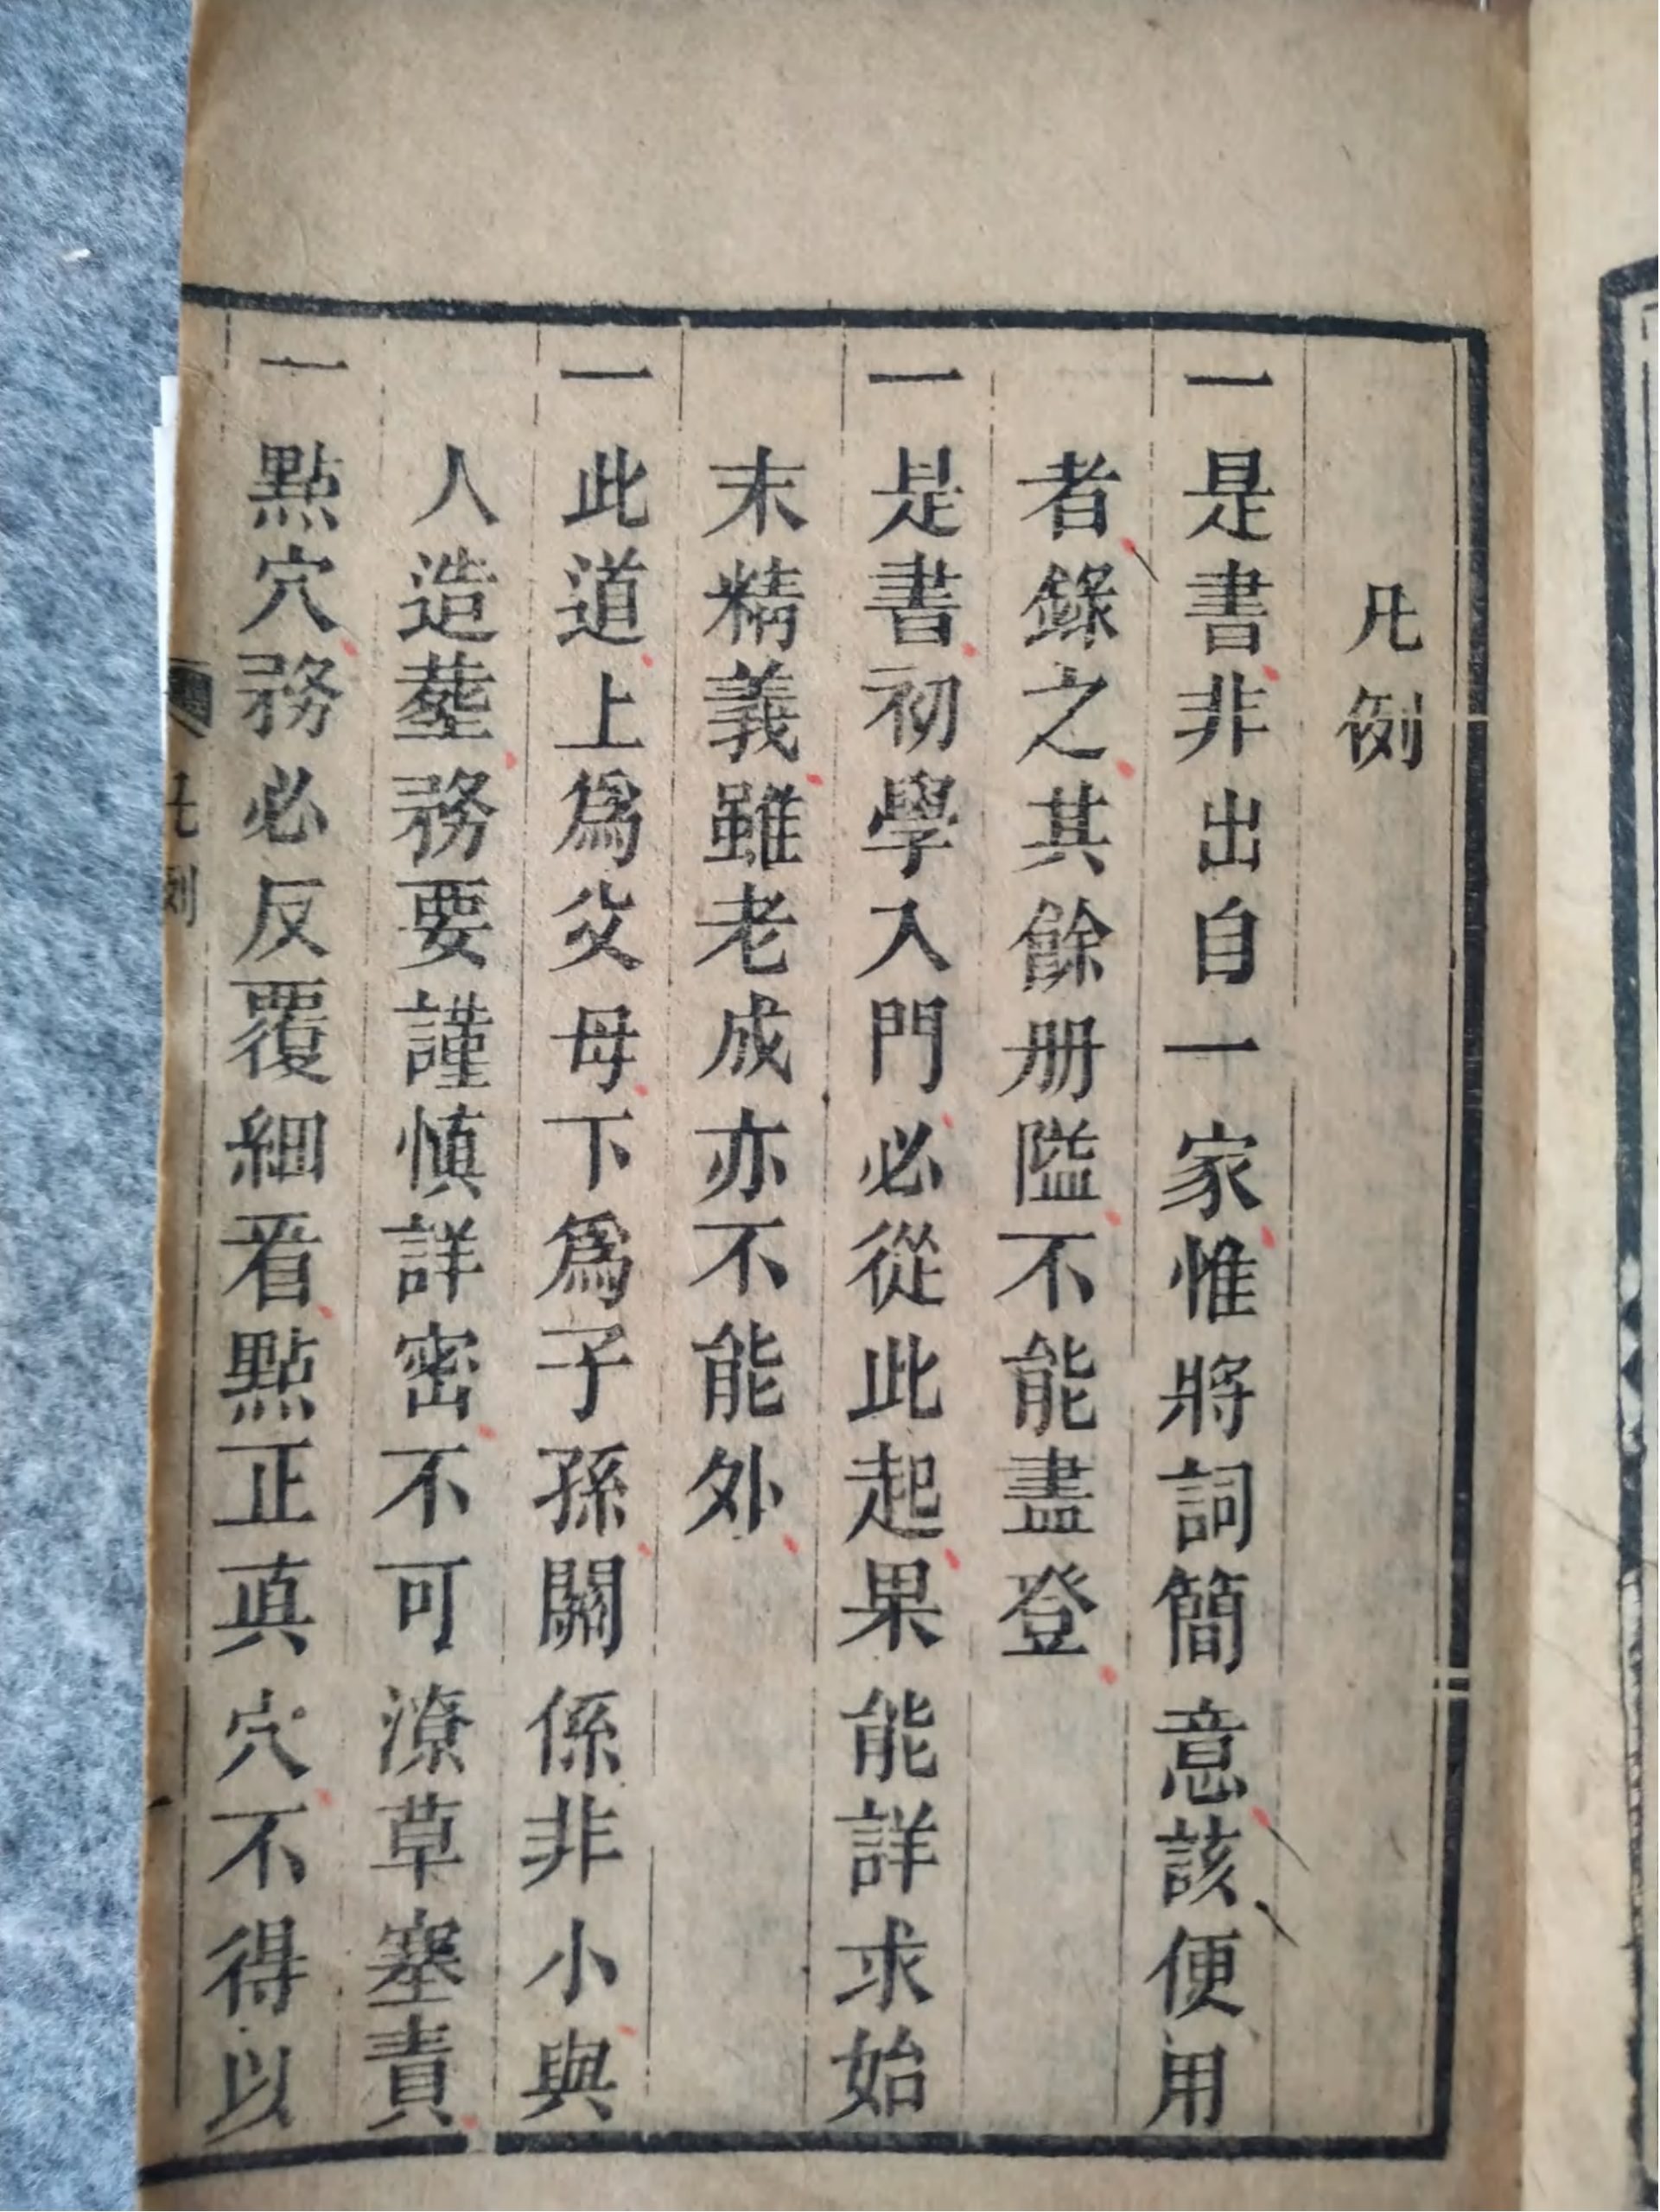 凡例
一是書非出自一家惟將詞簡意該便用
者錄之其餘册隘不能盡登
一是書初學入門必從此起果能詳求始
末精義雖老成亦不能外
一此道上爲父母下爲子孫關係非小與
人造塟務要謹慎詳密不可潦草塞責
一點穴務必反覆細看點正真穴不得以
凡例